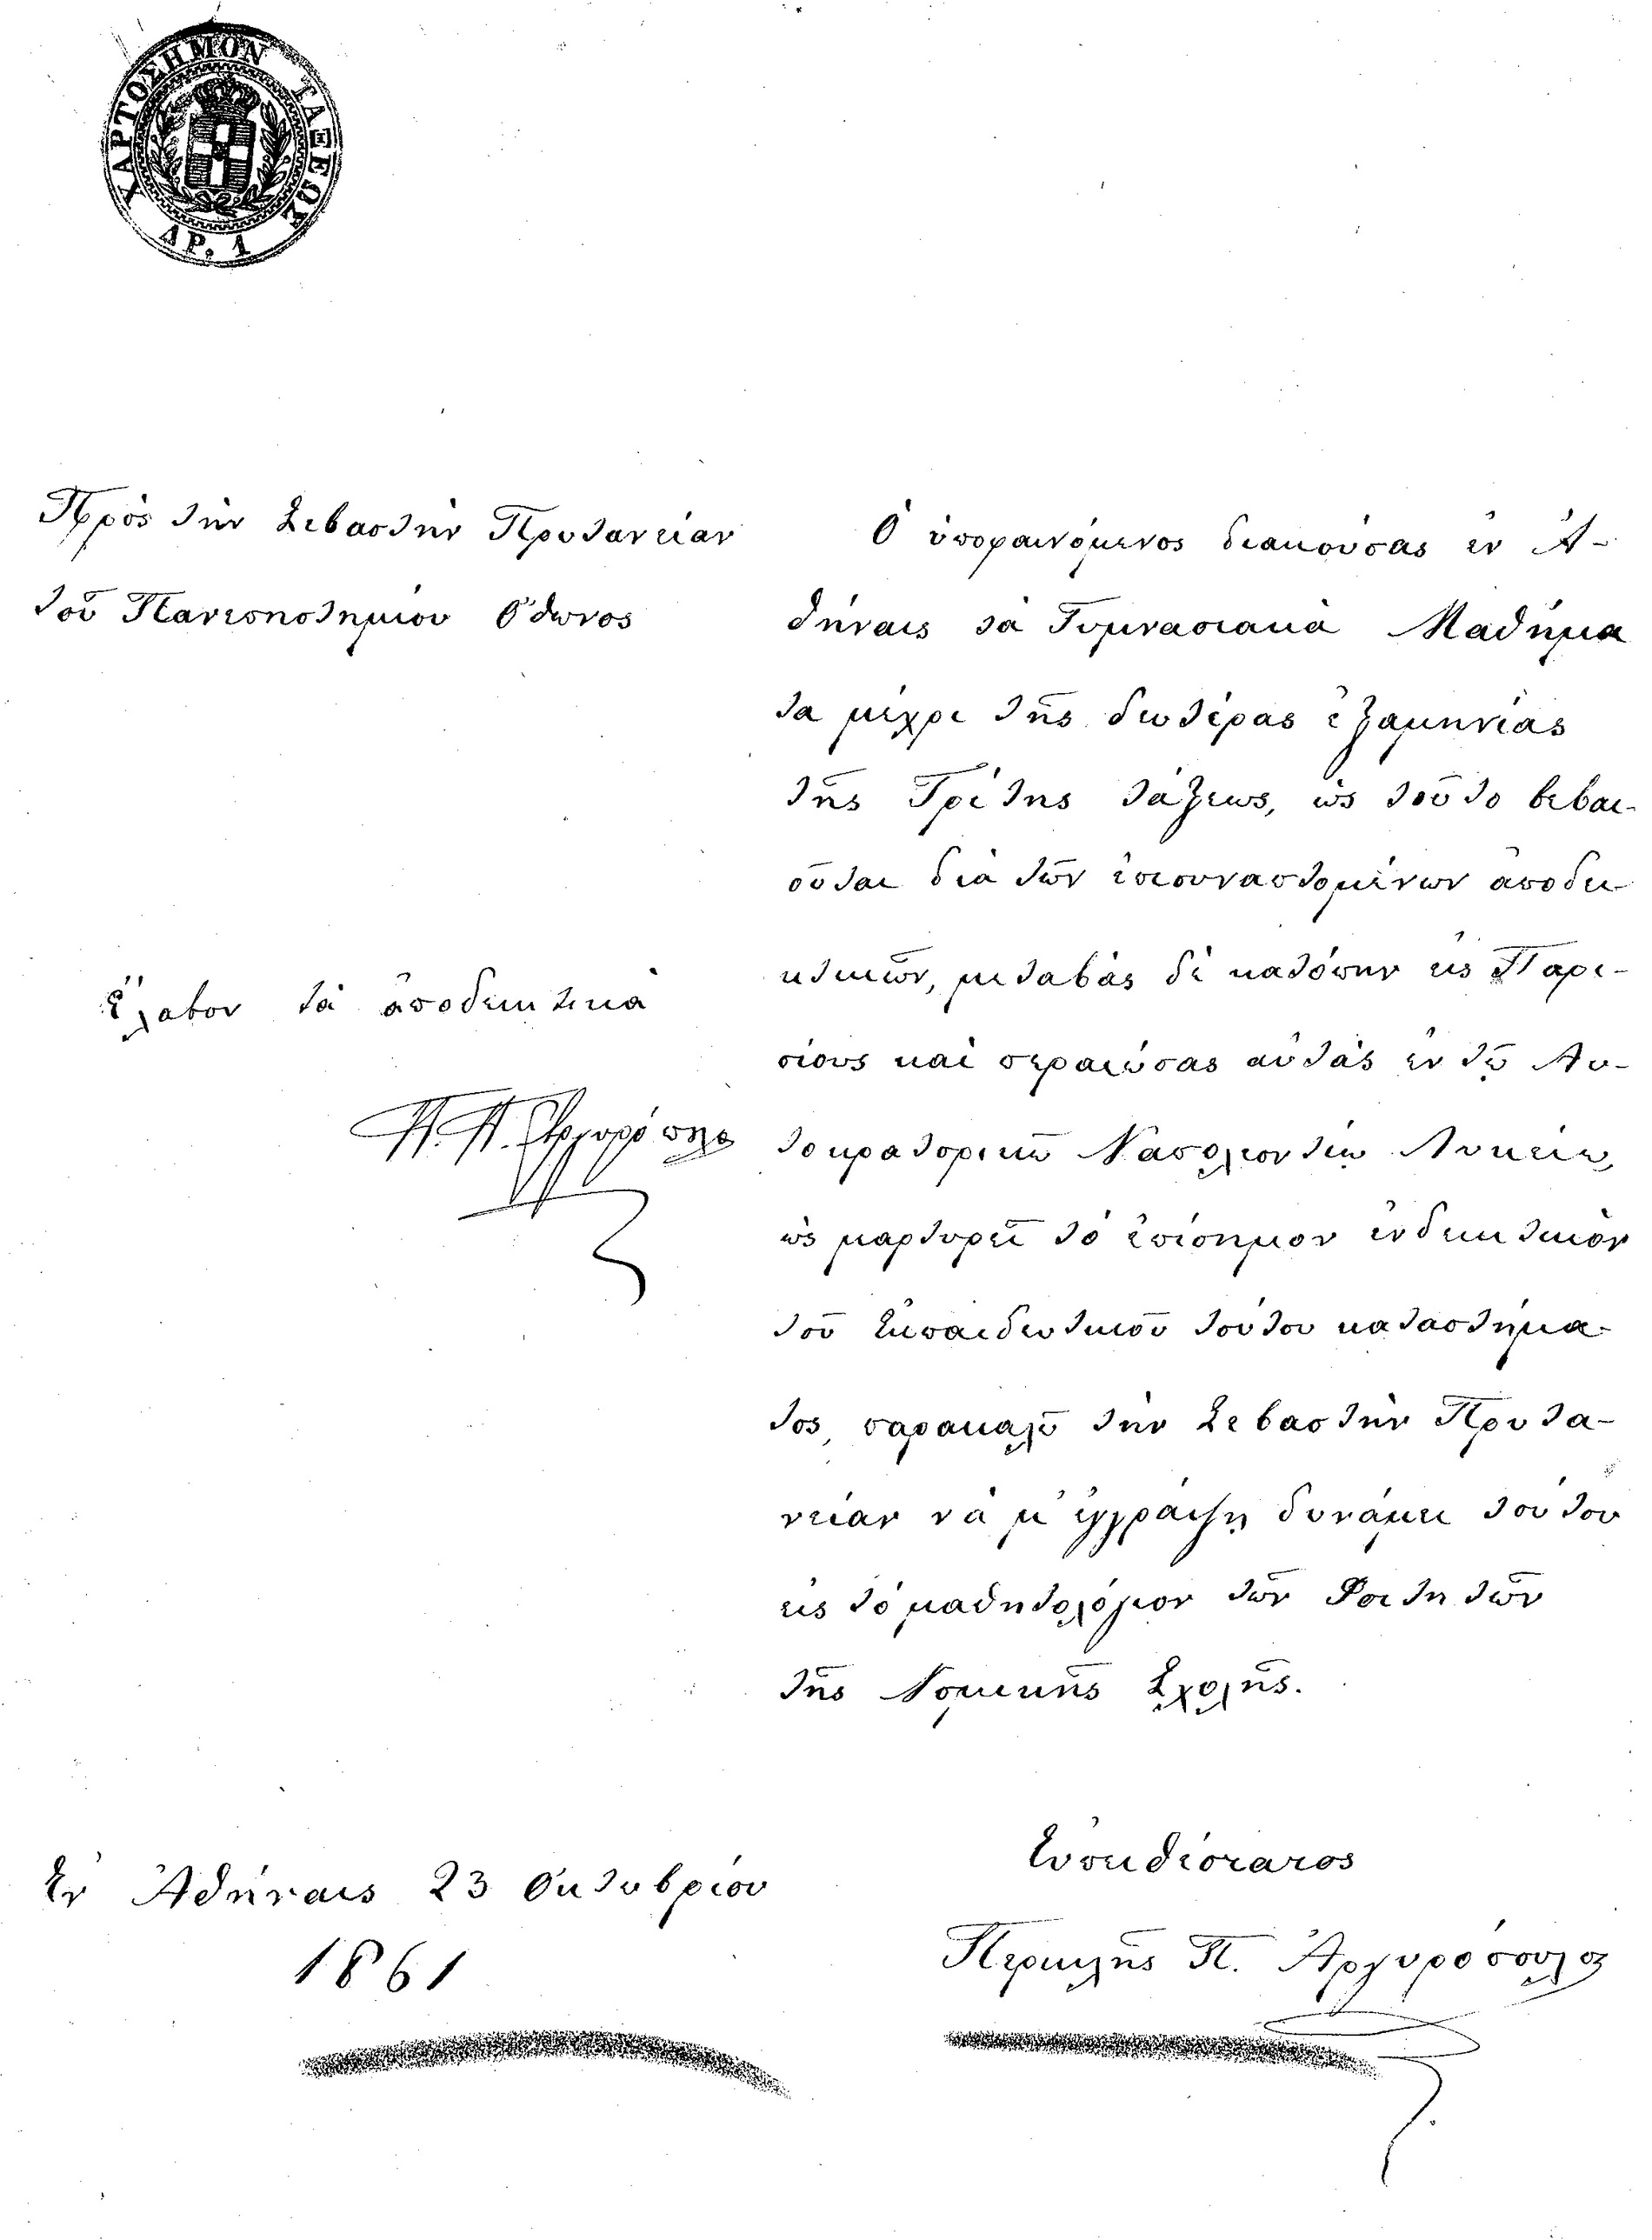 ΧΑΡΤΟΣΗΜΟΝ ΤΑΞΕΩΣ
ΔΡ. 1
Πρὸς τὴν Σεβαστὴν Πρυτανείαν
τοῦ Πανεπιστημίου Ὄθωνος
Ὁ ὑποφαινόμενος διακούσας ἐν Ἀ-
θήναις τὰ Γυμνασιακὰ Μαθήμα
τα μέχρι τῆς δευτέρας ἑξαμηνίας
τῆς Τρίτης τάξεως, ὡς τοῦτο βεβαι-
οῦται διὰ τῶν ἐπισυναπτομένων ἀποδει-
κτικῶν, μεταβὰς δὲ κατόπιν εἰς Παρι-
σίους καὶ περαιώσας αὐτὰς ἐν τῷ Αὐ-
τοκρατορικῷ Ναπολεοντείῳ Λυκείῳ,
ὡς μαρτυρεῖ τὸ ἐπίσημον ἐνδεικτικὸν
τοῦ Ἐκπαιδευτικοῦ τούτου καταστήμα-
τος, παρακαλῶ τὴν Σεβαστὴν Πρυτα-
νείαν νὰ μ' ἐγγράψῃ δυνάμει τούτου
εἰς τὸ μαθητολόγιον τῶν Φοιτητῶν
τῆς Νομικῆς Σχολῆς.
Ἔλαβον τὰ ἀποδεικτικὰ
Π. Π. Ἀργυρόπουλος
Ἐν Ἀθήναις 23 Ὀκτωβρίου
1861
Εὐπειθέστατος
Περικλῆς Π. Ἀργυρόπουλος